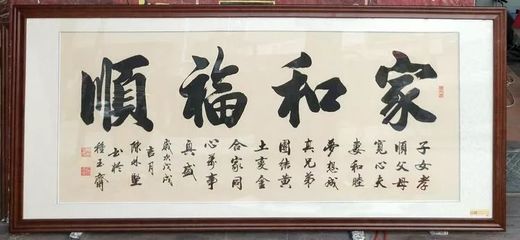 家和福順
子女孝
順父母
寬心夫
妻和睦
夢想成
真兄弟
團結黄
土變金
合家同
心萬事
歲次戊戌
吉月
書於
種玉齋